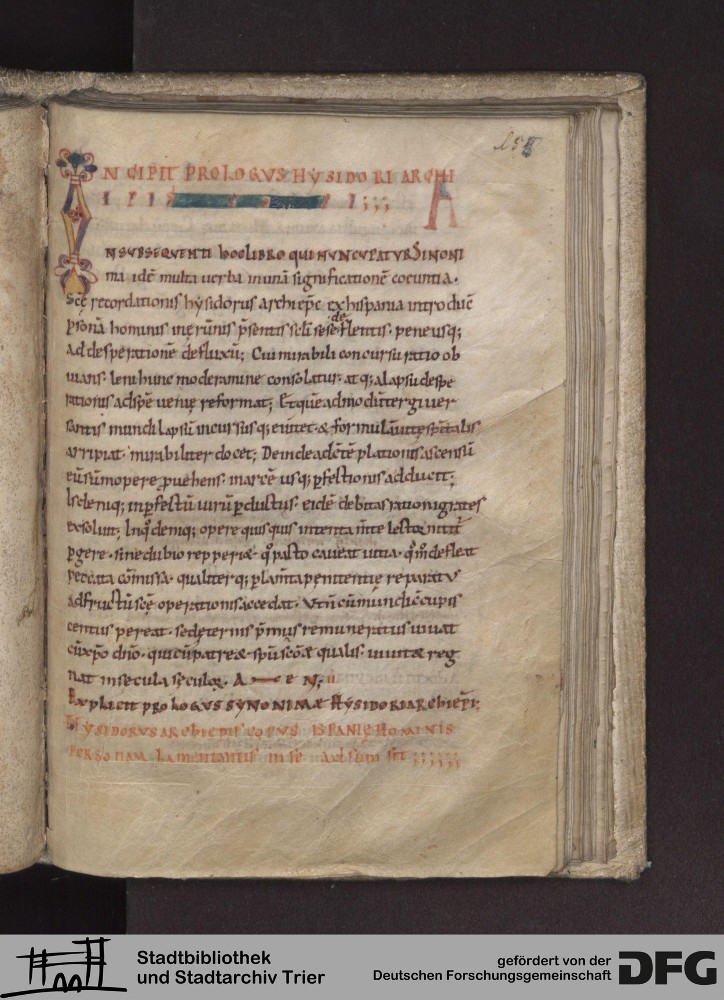 INCIPIT PROLOGVS HYSIDORI ARCHI
EPIS
IN SUBSEQUENTI hoc LIBRO QUI NUNCUPATUR SINONI
ma idē multa uerba in unā significationē coeuntia.
Scē recordationis hysidorus archiep̄c ex hispania introduc̄
p̄sonā hominis in erūnis p̄sentis sc̄li sese deflentis. pene usq;
ad desperationē defluxū; Cui mirabili concursu ratio ob
uians. leni hunc moderamine consolatur. atq; a lapsu despe
rationis ad spē uenię reformat; Et quē admodū tergiuer
santis mundi lapsū incursusq; euitet. & formulā uitę sp̄italis
arripiat. mirabiliter docet; Deinde ad cōtēplationis ascensū
eū sūmopere prouehens. in arcē usq; p̄fectionis adducit;
Isdeniq; in p̄fectū uirū p̄ductus. eidē debitas rationi grates
exsoluit; In q̊ deniq; opere quisquis intenta m̄te lector nitit̄
p̄gere. sine dubio repperi&. q̊ pacto caueat uitia. q̊m̊ defleat
peccata cōmissa. qualiterq; p̄ lam̄ta penitentię reparatu
ad fructū scę operationis accedat. Vt n̄ cū mundi c̄cupis
centiis pereat. sed ęternis p̄miis remuneratus uiuat
cū xp̄o dn̄o. qui cū patre & sp̄u sc̄o ęqualis. uiuit & reg
nat in secula seculoꝝ. A M E N;
Explicit prologus synonimæ Hysidori archiep̄i;
HYSIDORUS ARCHIEPIS COPUS ISPANIĘ HOMINIS
PERSONAM Lamentantis in se adsumsit ;;;;;;
Stadtbibliothek
und Stadtarchiv Trier
gefördert von der
Deutschen Forschungsgemeinschaft
DFG